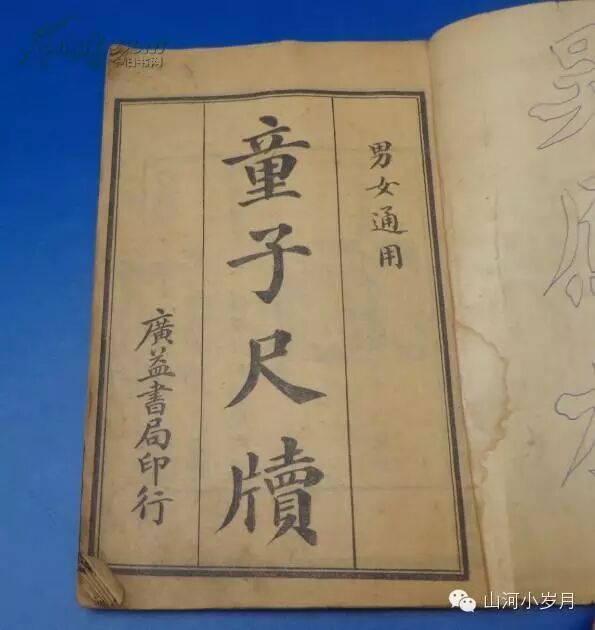 男女通用
童子尺牘
廣益書局印行
山河小岁月